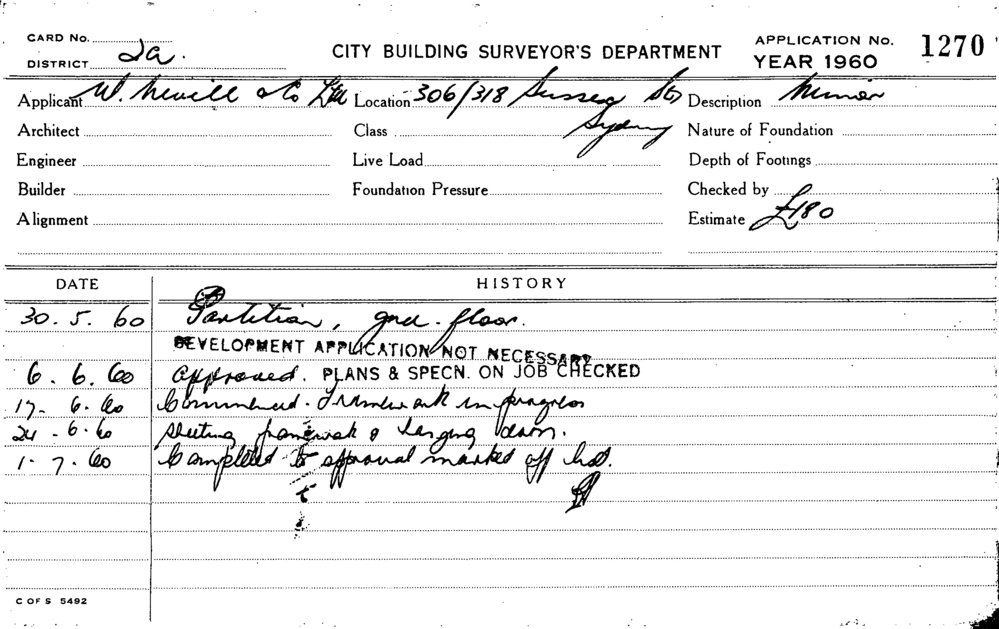 CARD No.
DISTRICT 2a.
CITY BUILDING SURVEYOR'S DEPARTMENT
APPLICATION No. 1270
YEAR 1960
Applicant W. Nevill & Co Ltd Location 306/318 Sussex St Description Minor
Sydney
Architect Class Nature of Foundation
Engineer Live Load Depth of Footings
Builder Foundation Pressure Checked by
Alignment Estimate £180
DATE HISTORY
30. 5. 60 Partition, gnd. floor.
DEVELOPMENT APPLICATION NOT NECESSARY
6. 6. 60 Approved. PLANS & SPECN. ON JOB CHECKED
17. 6. 60 Commenced. Framework in progress
24. 6. 60 Sheeting framework & hanging doors.
1. 7. 60 Completed to approval marked off list.
C OF S 5492